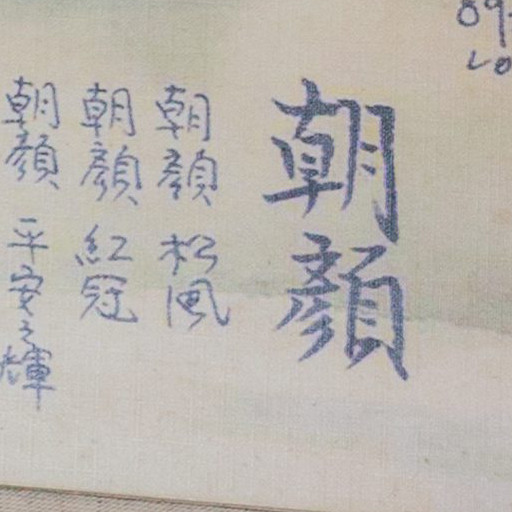 朝顔
朝顔 松風
朝顔 紅冠
朝顔 平安之輝